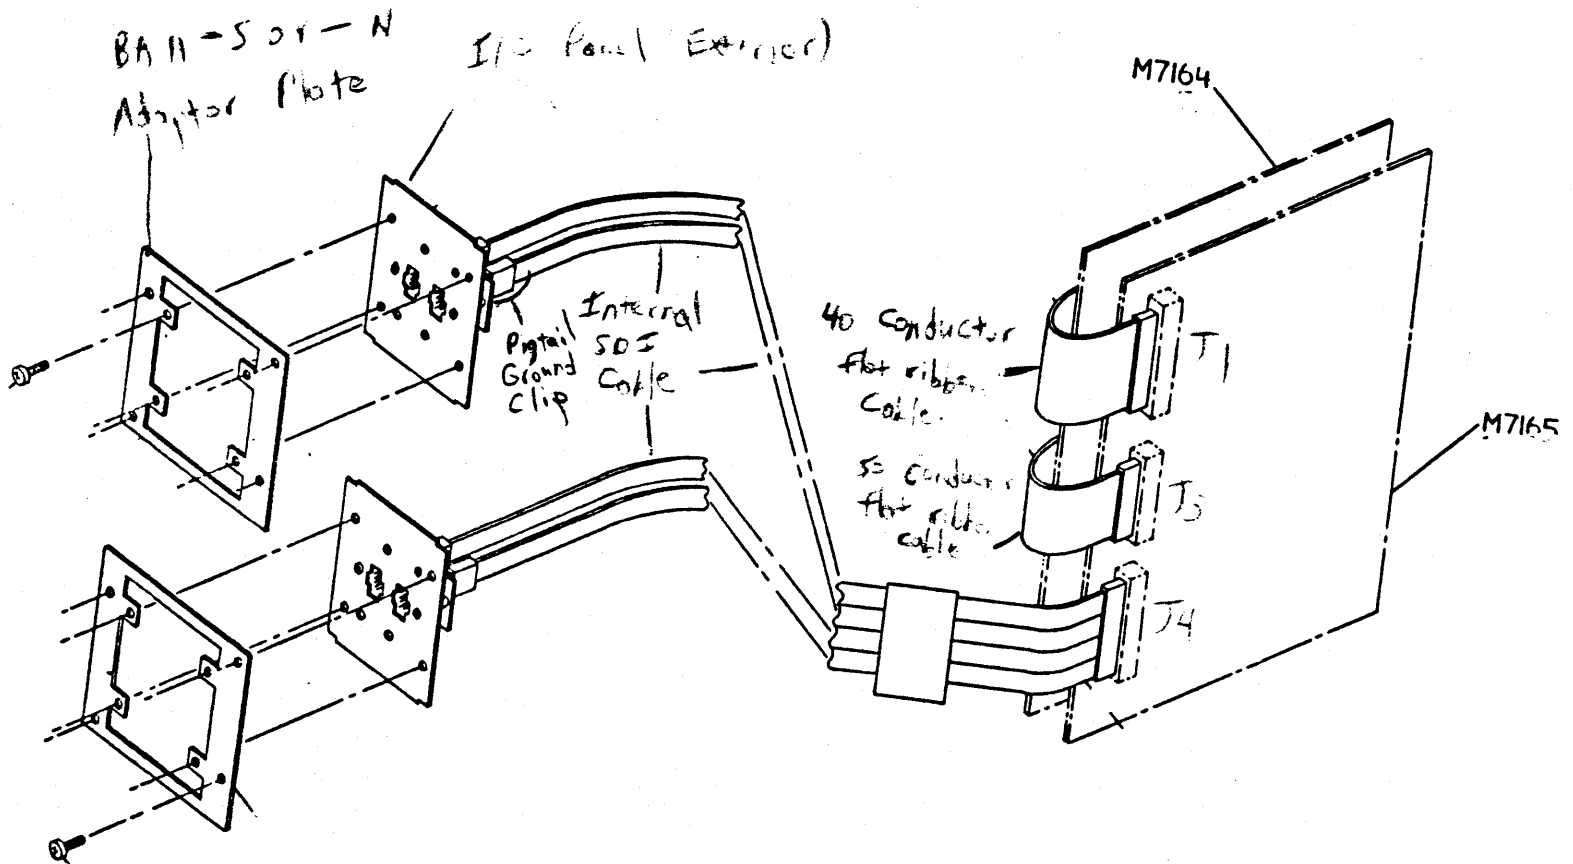 BA11-S or - N
Adaptor Plate
I/O Panel (Exterior)
M7164
Pigtail
Ground
Clip
Internal
SDI
Cable
40 Conductor
flat ribbon
Cable
50 conductor
flat ribbon
cable
J1
J3
J4
M7165